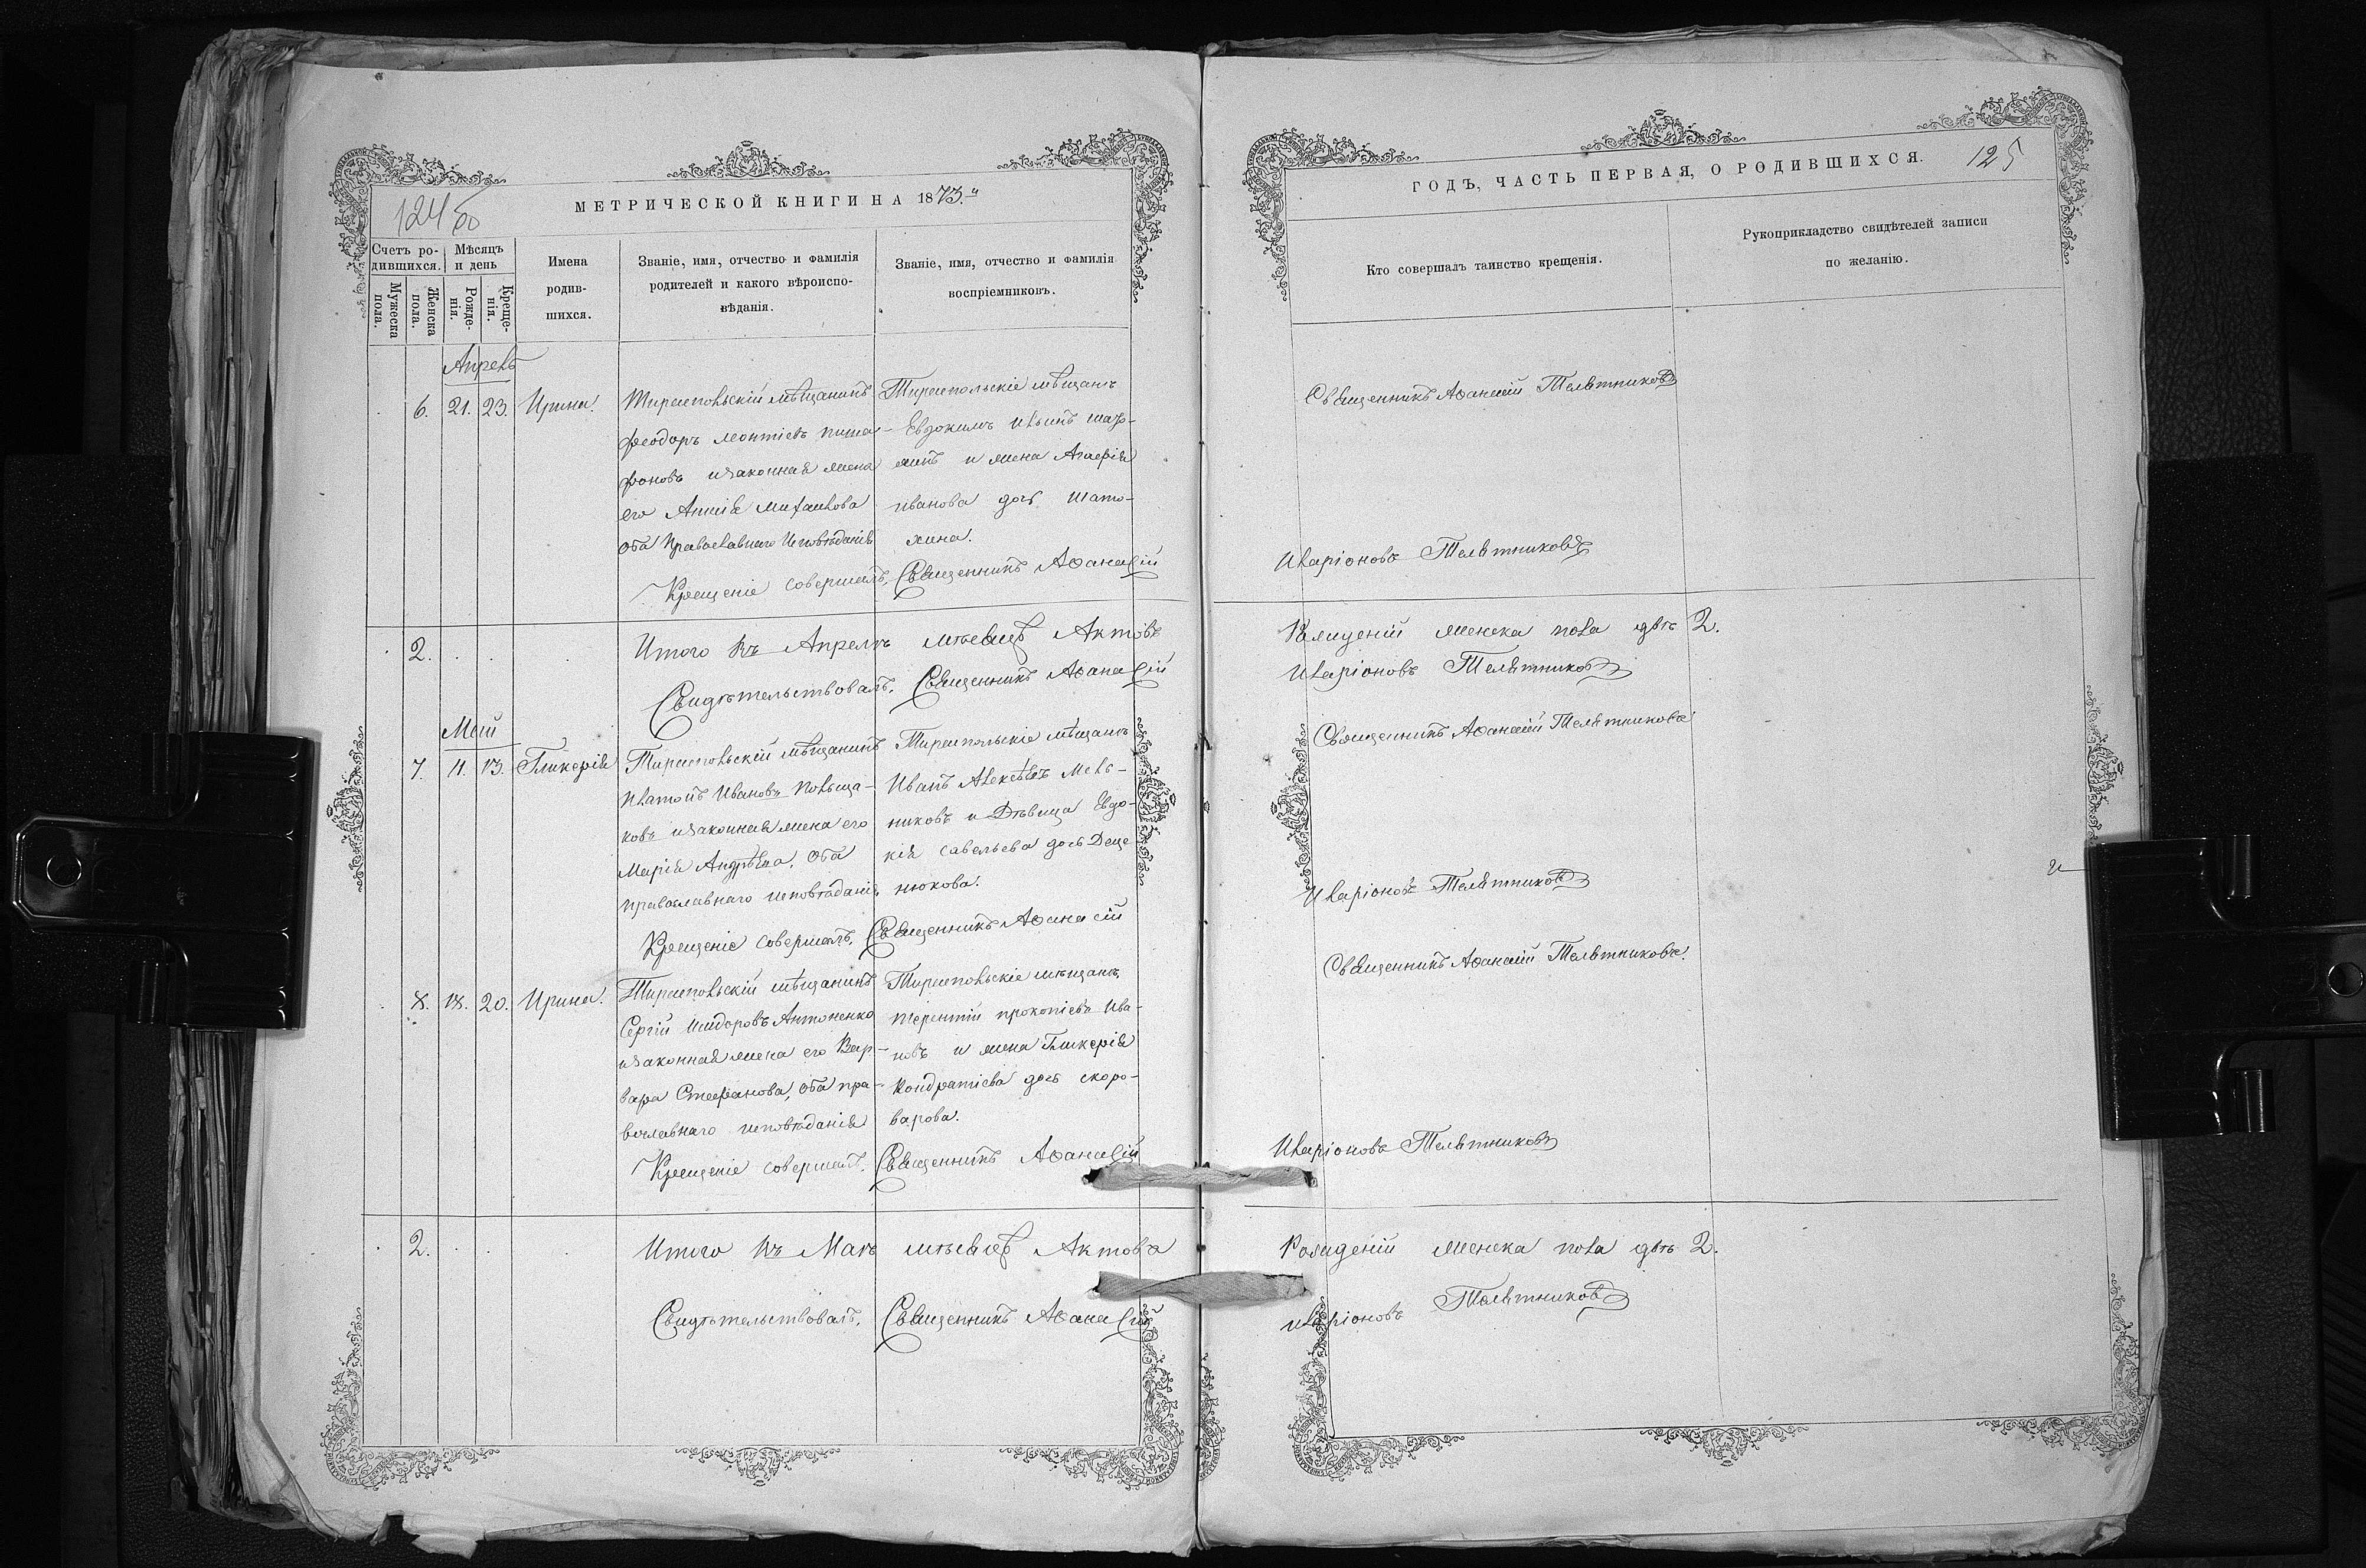 МЕТРИЧЕСКОЙ КНИГИ НА 1873.й
124 об
Счетъ ро-
дившихся.
Мѣсяцъ
и день
Мужеска
пола.
Женска
пола.
Рожде-
нія.
Креще-
нія.
Имена
родив-
шихся.
Званіе, имя, отчество и фамилія
родителей и какого вѣроиспо-
вѣданія.
Званіе, имя, отчество и фамилія
воспріемниковъ.
Апрель
6. 21. 23. Ирина.
Тираспольскій мѣщанинъ
Феодоръ Леонтіевъ
и законная жена
его Анния Михаилова
оба Православнаго Исповѣданія
Тираспольскіе мѣщане
Евдокимъ Ильинъ
и жена Агафія
Иванова дочь Шато-
хина.
Крещеніе совершалъ, Священникъ Аѳанасій
2.
Итого въ Апрелѣ мѣсяцѣ Актовъ
Свидѣтельствовалъ, Священникъ Аѳанасій
Май
7. 11. 13. Гликерія
Тираспольскій мѣщанинъ
Платонъ Ивановъ Польща-
ковъ и законная жена его
Марія Андрѣева, оба
православнаго исповѣданія,
Тираспольскіе мѣщане
Иванъ Алексѣевъ Мель-
никовъ и Дѣвица Евдо-
кія Савельева дочь Деще-
нюкова.
Крещеніе совершалъ, Священникъ Аѳанасій
8. 18. 20. Ирина.
Тираспольскій мѣщанинъ
Сергій Исидоровъ Антоненко
и законная жена его Вар-
вара Стефанова, оба пра-
вославнаго исповѣданія
Тираспольскіе мѣщане,
Терентій Прокопіевъ Ива-
новъ и жена Гликерія
Кондратіева дочь скоро-
варова.
Крещеніе совершалъ, Священникъ Аѳанасій
2.
Итого въ Маѣ мѣсяцѣ Актова
Свидѣтельствовалъ, Священникъ Аѳанасій
ГОДЪ, ЧАСТЬ ПЕРВАЯ, О РОДИВШИХСЯ.
125
Кто совершалъ таинство крещенія.
Рукоприкладство свидѣтелей записи
по желанію.
Священникъ Аѳанасій Телятниковъ
Иларіоновъ Телятниковъ
Рожденій женска пола двѣ 2.
Иларіоновъ Телятниковъ
Священникъ Аѳанасій Телятниковъ
Иларіоновъ Телятниковъ
Священникъ Аѳанасій Телятниковъ.
Иларіоновъ Телятниковъ
Рожденій женска пола двѣ 2.
Иларіоновъ Телятниковъ